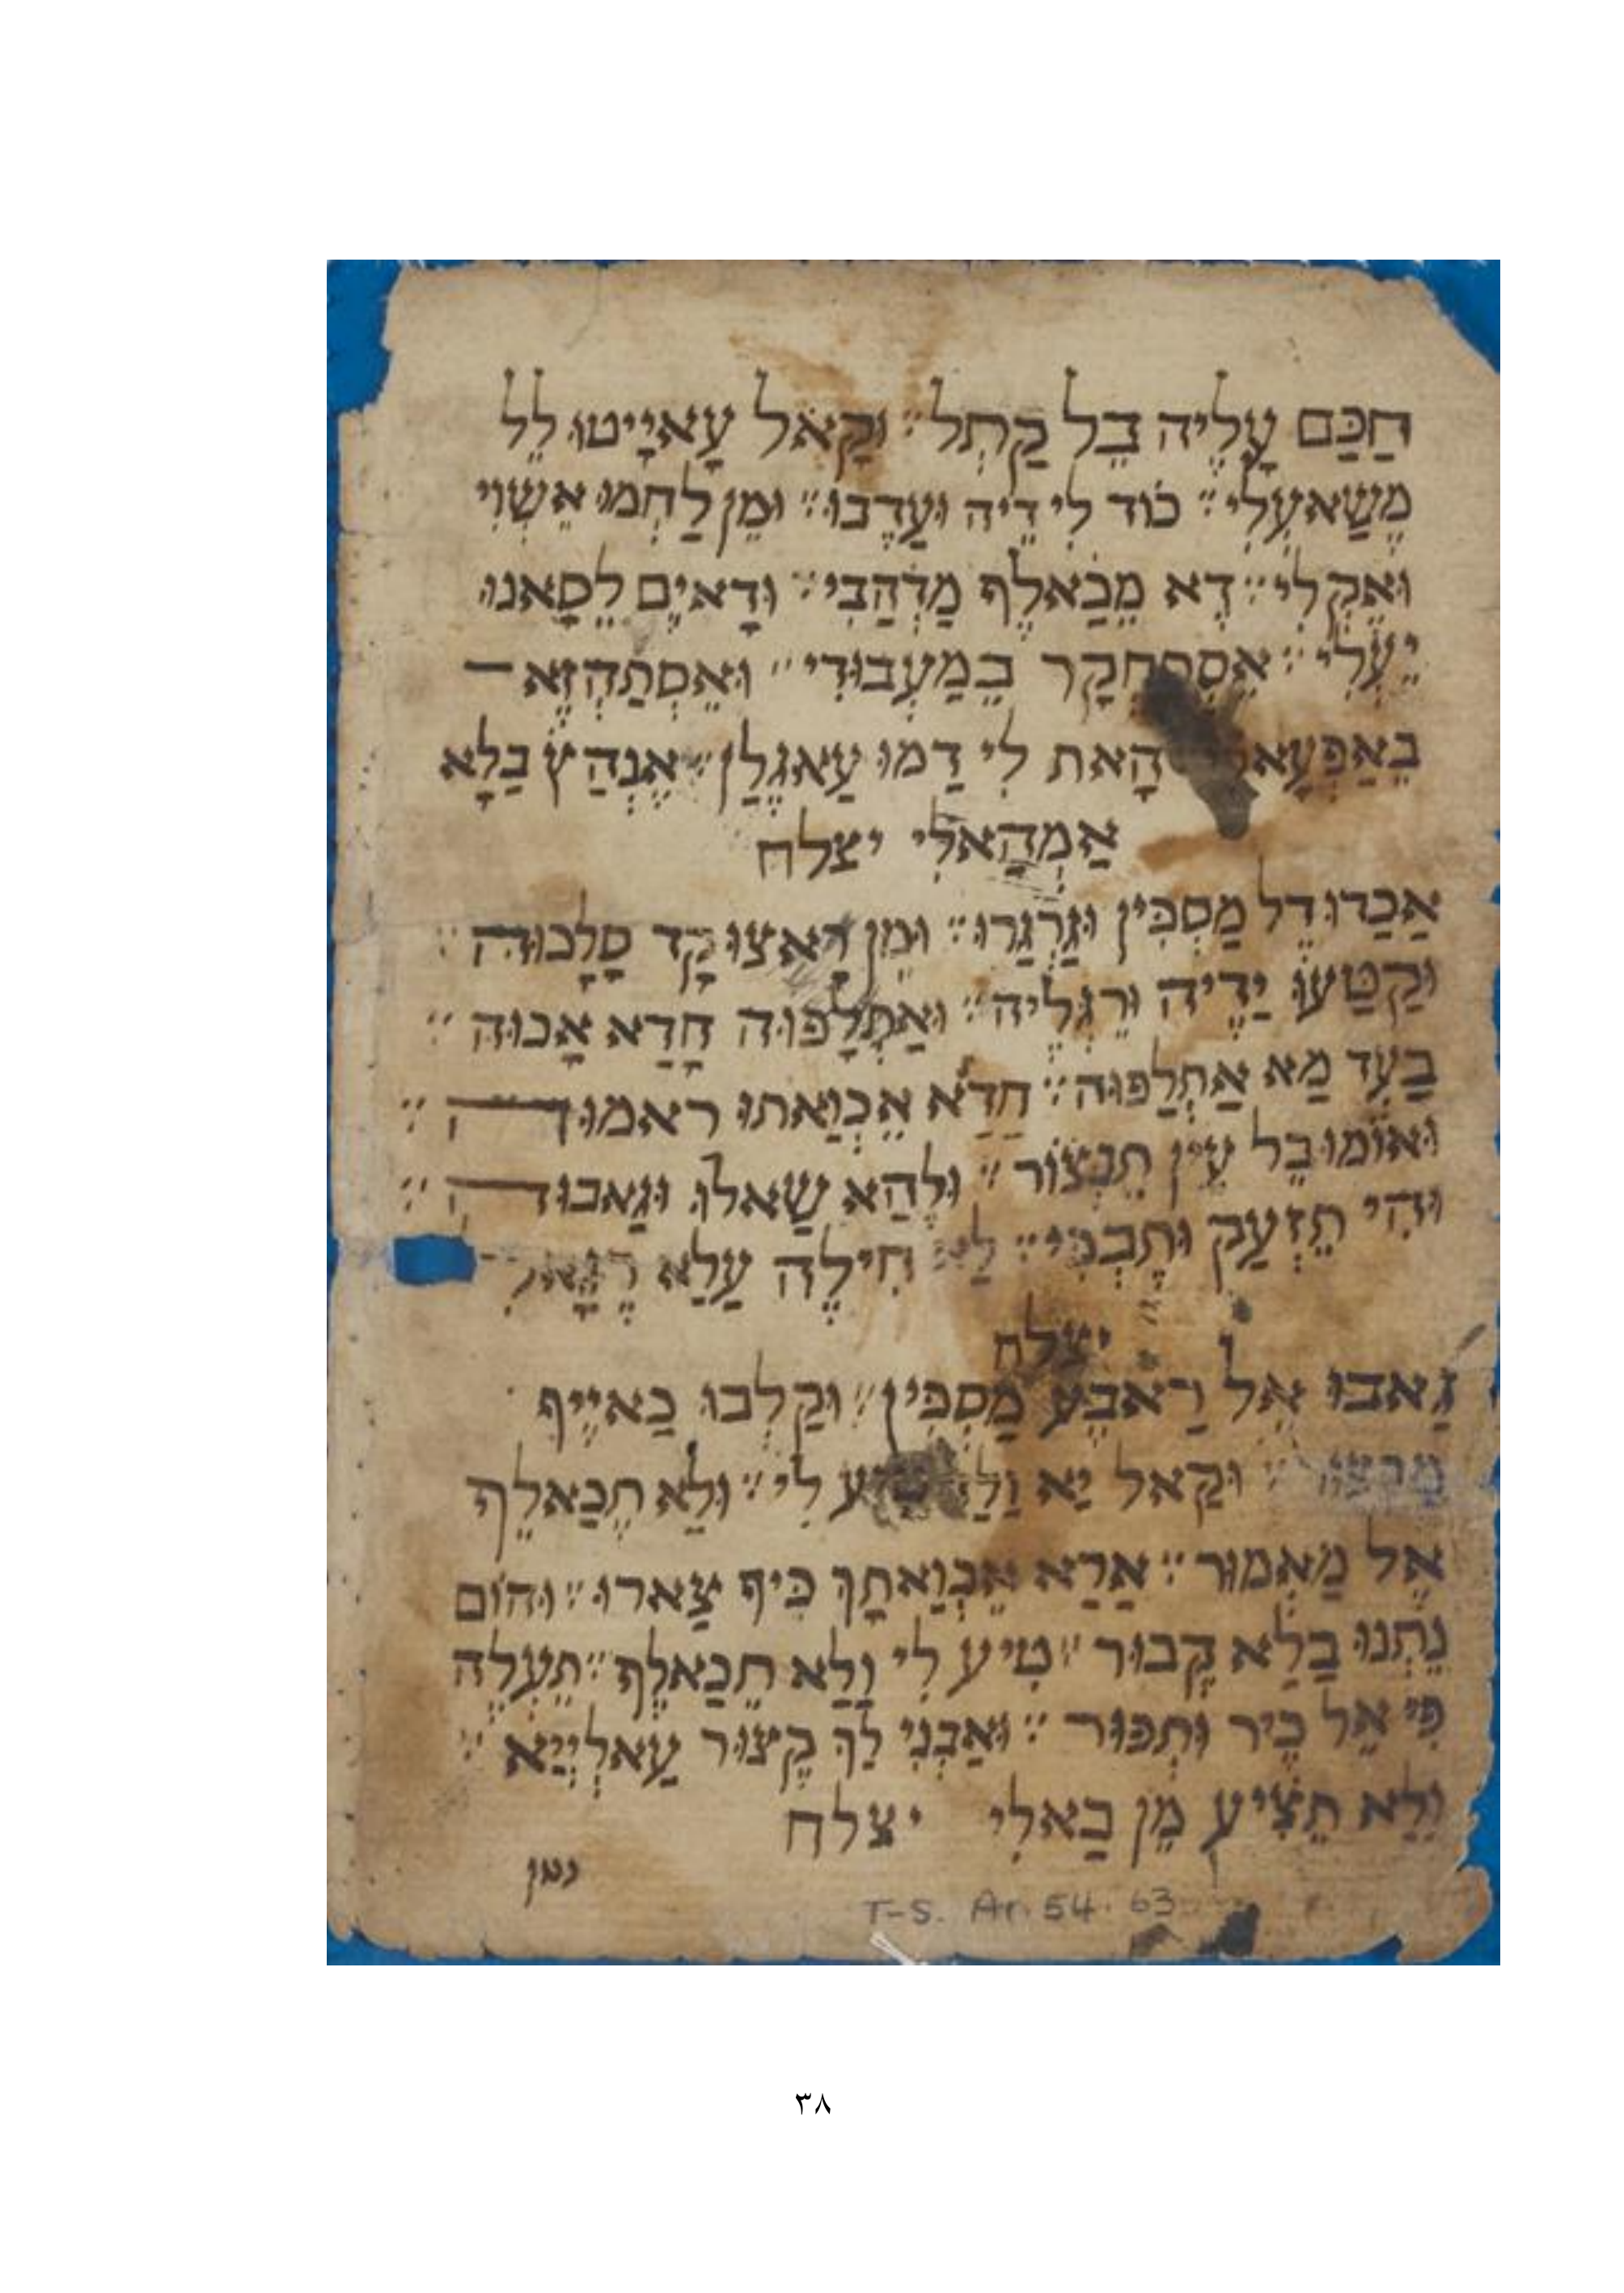 חַכַּם עָלֶיה בֵל קַתְל׃ וּקָאל עָאיָיטוּ לֵל
מֶשַׁאעִלִי׃ כוד לִי דֵיה וּעַדֶבוּ׃ וּמֵן לַחְמוּ אִשְוִי
וּאֶקְלִי׃ דָא מֵכַאלֶף מַדְהַבִי׃ וּדָאיֶם לֵסָאנוּ
יֵעְלִי׃ בֵמַעְבוּדִי׃ וּאֵסְתַהְזֶא
הָאת לִי דַמוּ עַאגֶלַן׃ אֶנְהַץ בַלָא
אַמְהָאלִי יצלח
אַכַדוּ דֵל מַסְכִּין וּגַרְגַרוּ׃ וּמֵן רָאצוּ קָד סָלָכוּה׃
וּקַטַעוּ יַדֶיה וּרֵגְלֶיה׃ וּאַתְלָפוּה חָדָא אָכוּה׃
בַעְד מַא אַתְלַפוּה׃ חַדַא אֵכְוַאתוּ ראמוּה׃
וּאוֹמוּ בֵל עֵין תַנְצוֹר׃ וּלֶהַא שַאלוּ וּגַאבוּה׃
וּהִי תֵזְעַק וּתֶבְכִּי׃ לַא חִילֶה עַלַא
יצלח
גַאבוּ אֵל רַאבֶע מַסְכִּין׃ וּקַלְבוּ כַאיֶיף
וּקַאל יַא לִי׃ וּלַא תֶכַאלֵף
אֶל מַאְמוּר׃ אַרַא אֵכְוַאתָךּ כִּיף צַארוּ׃ וּהוֹם
נֵתְנוּ בַלַא קְבוּר׃ טִיע לִי וַלַא תֵכַאלֶף׃ תֵעְלֶה
פִּי אֵל כֵיר וּתְפוּר׃ וּאַבְנִי לַךּ קֶצוּר עַאלְיֶיַא׃
וַלַא תֵצִיע מֵן בַאלִי יצלח
T-S. Ar. 54. 63
٣٨